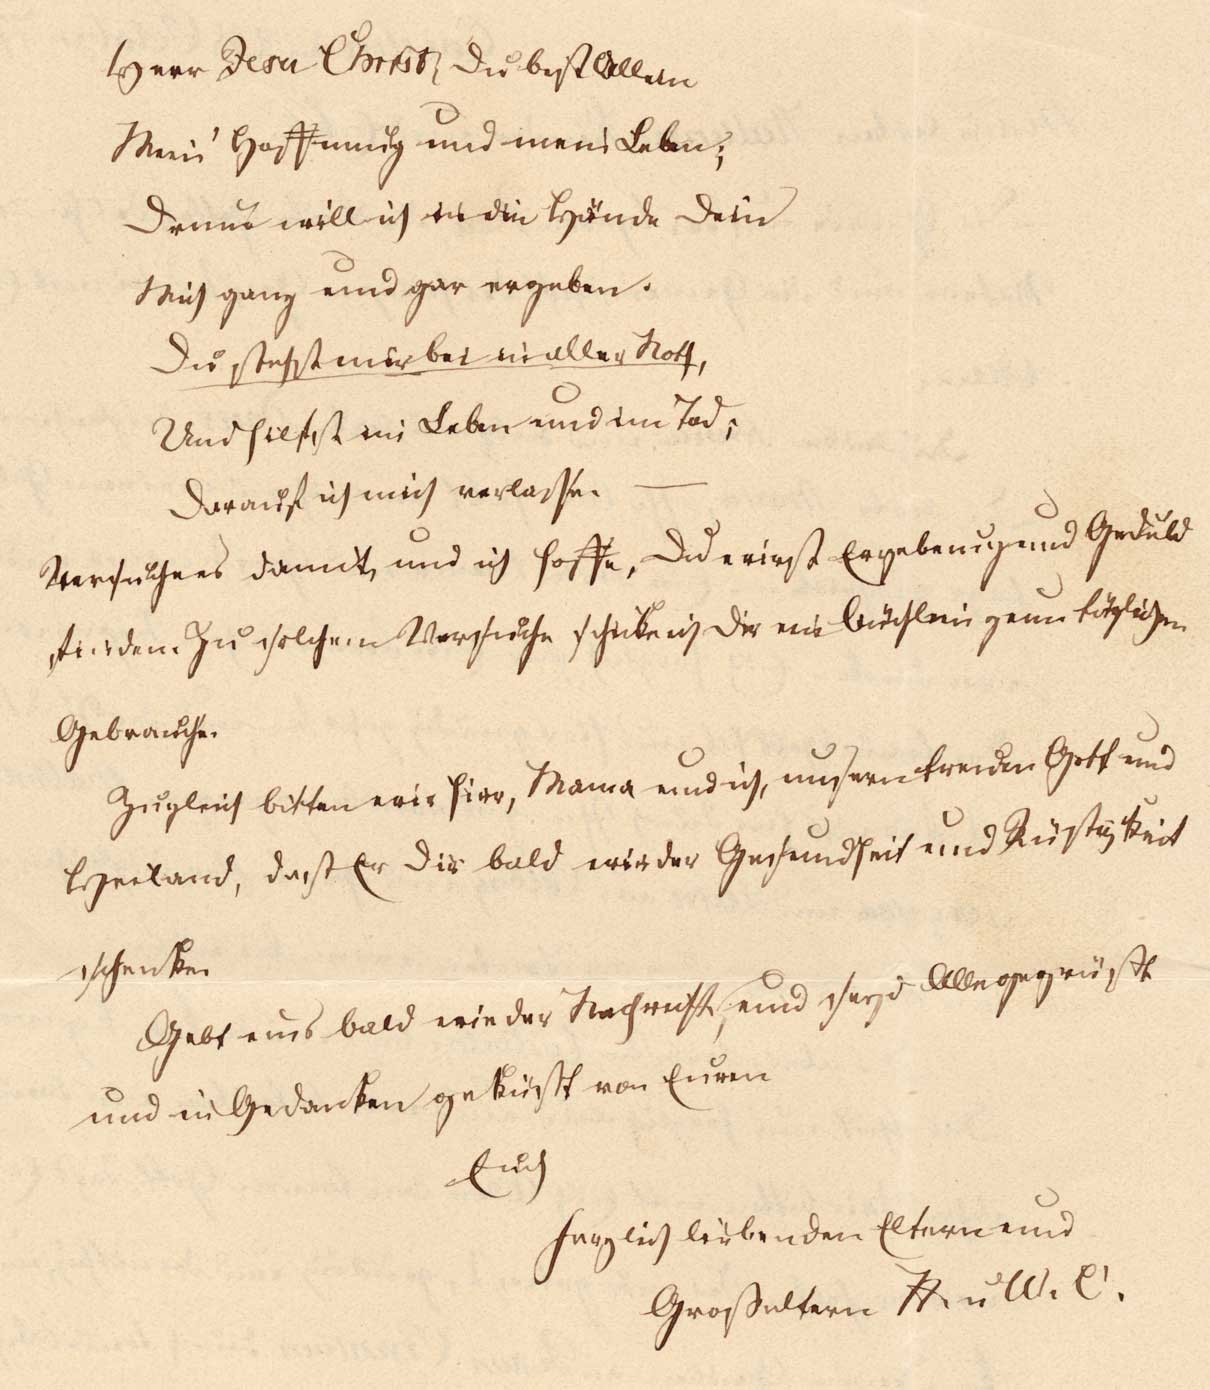 Herr Jesu Christ, Du bist allein
Mein' Hoffnung und mein Leben;
Drum will ich in die Hände Dein
Mich ganz und gar ergeben.
Du stehst mir bei in aller Noth,
Und hilfst im Leben und im Tod;
Darauf ich mich verlasse. —
Versuch es damit, und ich hoffe, Du wirst Ergebung und Geduld
finden. Zu solchem Versuche schicke ich Dir ein Büchlein zum täglichen
Gebrauche.
Zugleich bitten wir hier, Mama und ich, unsern treuen Gott und
Heiland, daß Er Dir bald wieder Gesundheit und Rüstigkeit
schenke.
Gebt uns bald wieder Nachricht, und seyd Alle gegrüßt
und in Gedanken geküßt von Euren
Euch
herzlich liebenden Eltern und
Großeltern H. u W. C.